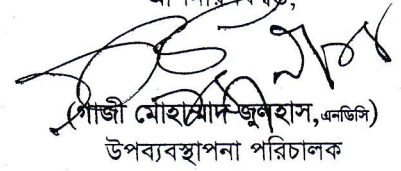 (গাজী মোহাম্মদ জুলহাস, এনডিসি)
উপব্যবস্থাপনা পরিচালক